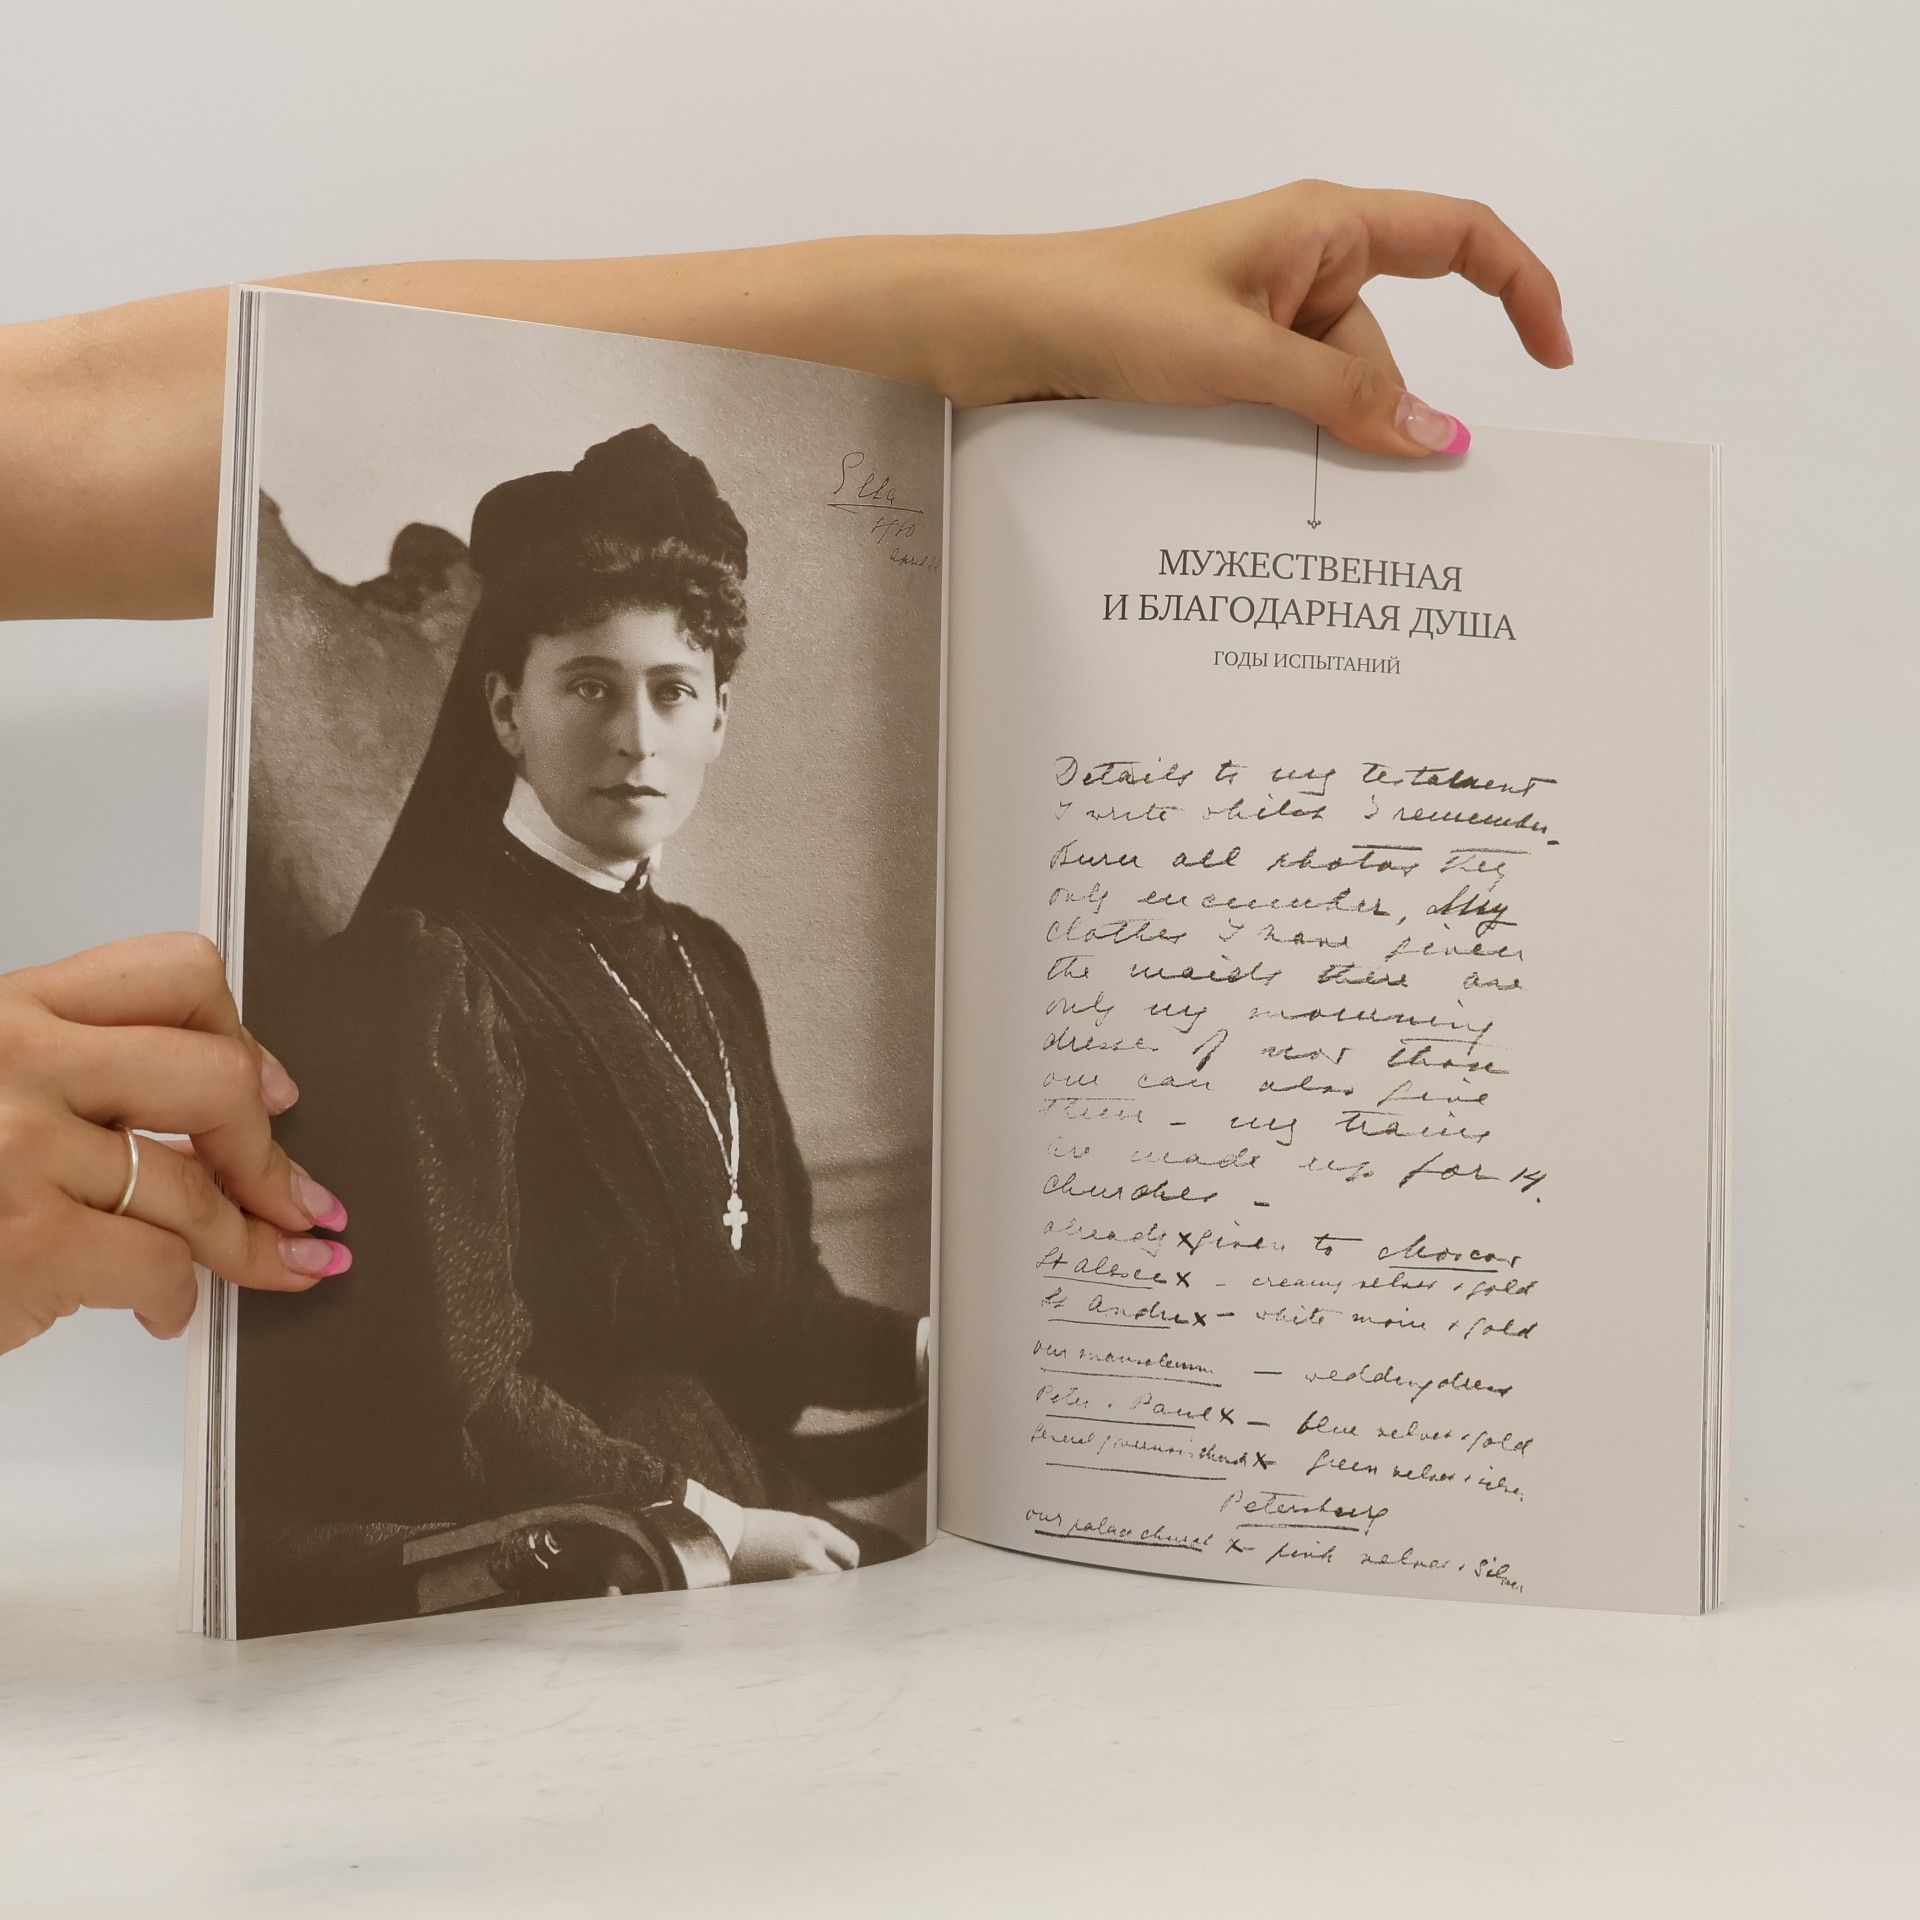 Ella
1910
April
МУЖЕСТВЕННАЯ
И БЛАГОДАРНАЯ ДУША
ГОДЫ ИСПЫТАНИЙ
Details to my testament
I write whilst I remember.
Burn all photos they
only encumber, My
clothes I have given
the maids there are
only my mourning
dresses if not than
one can also give
them – my trains
are made up for 14.
churches –
already x given to Moscow
St x – creamy velvet + gold
St Andre x – white moire + gold
our mausoleum – weddingdress
Peter + Paul x – blue velvet + gold
General governor's church x green velvet + silver
Petersburg
our palace church x – pink velvet + silver